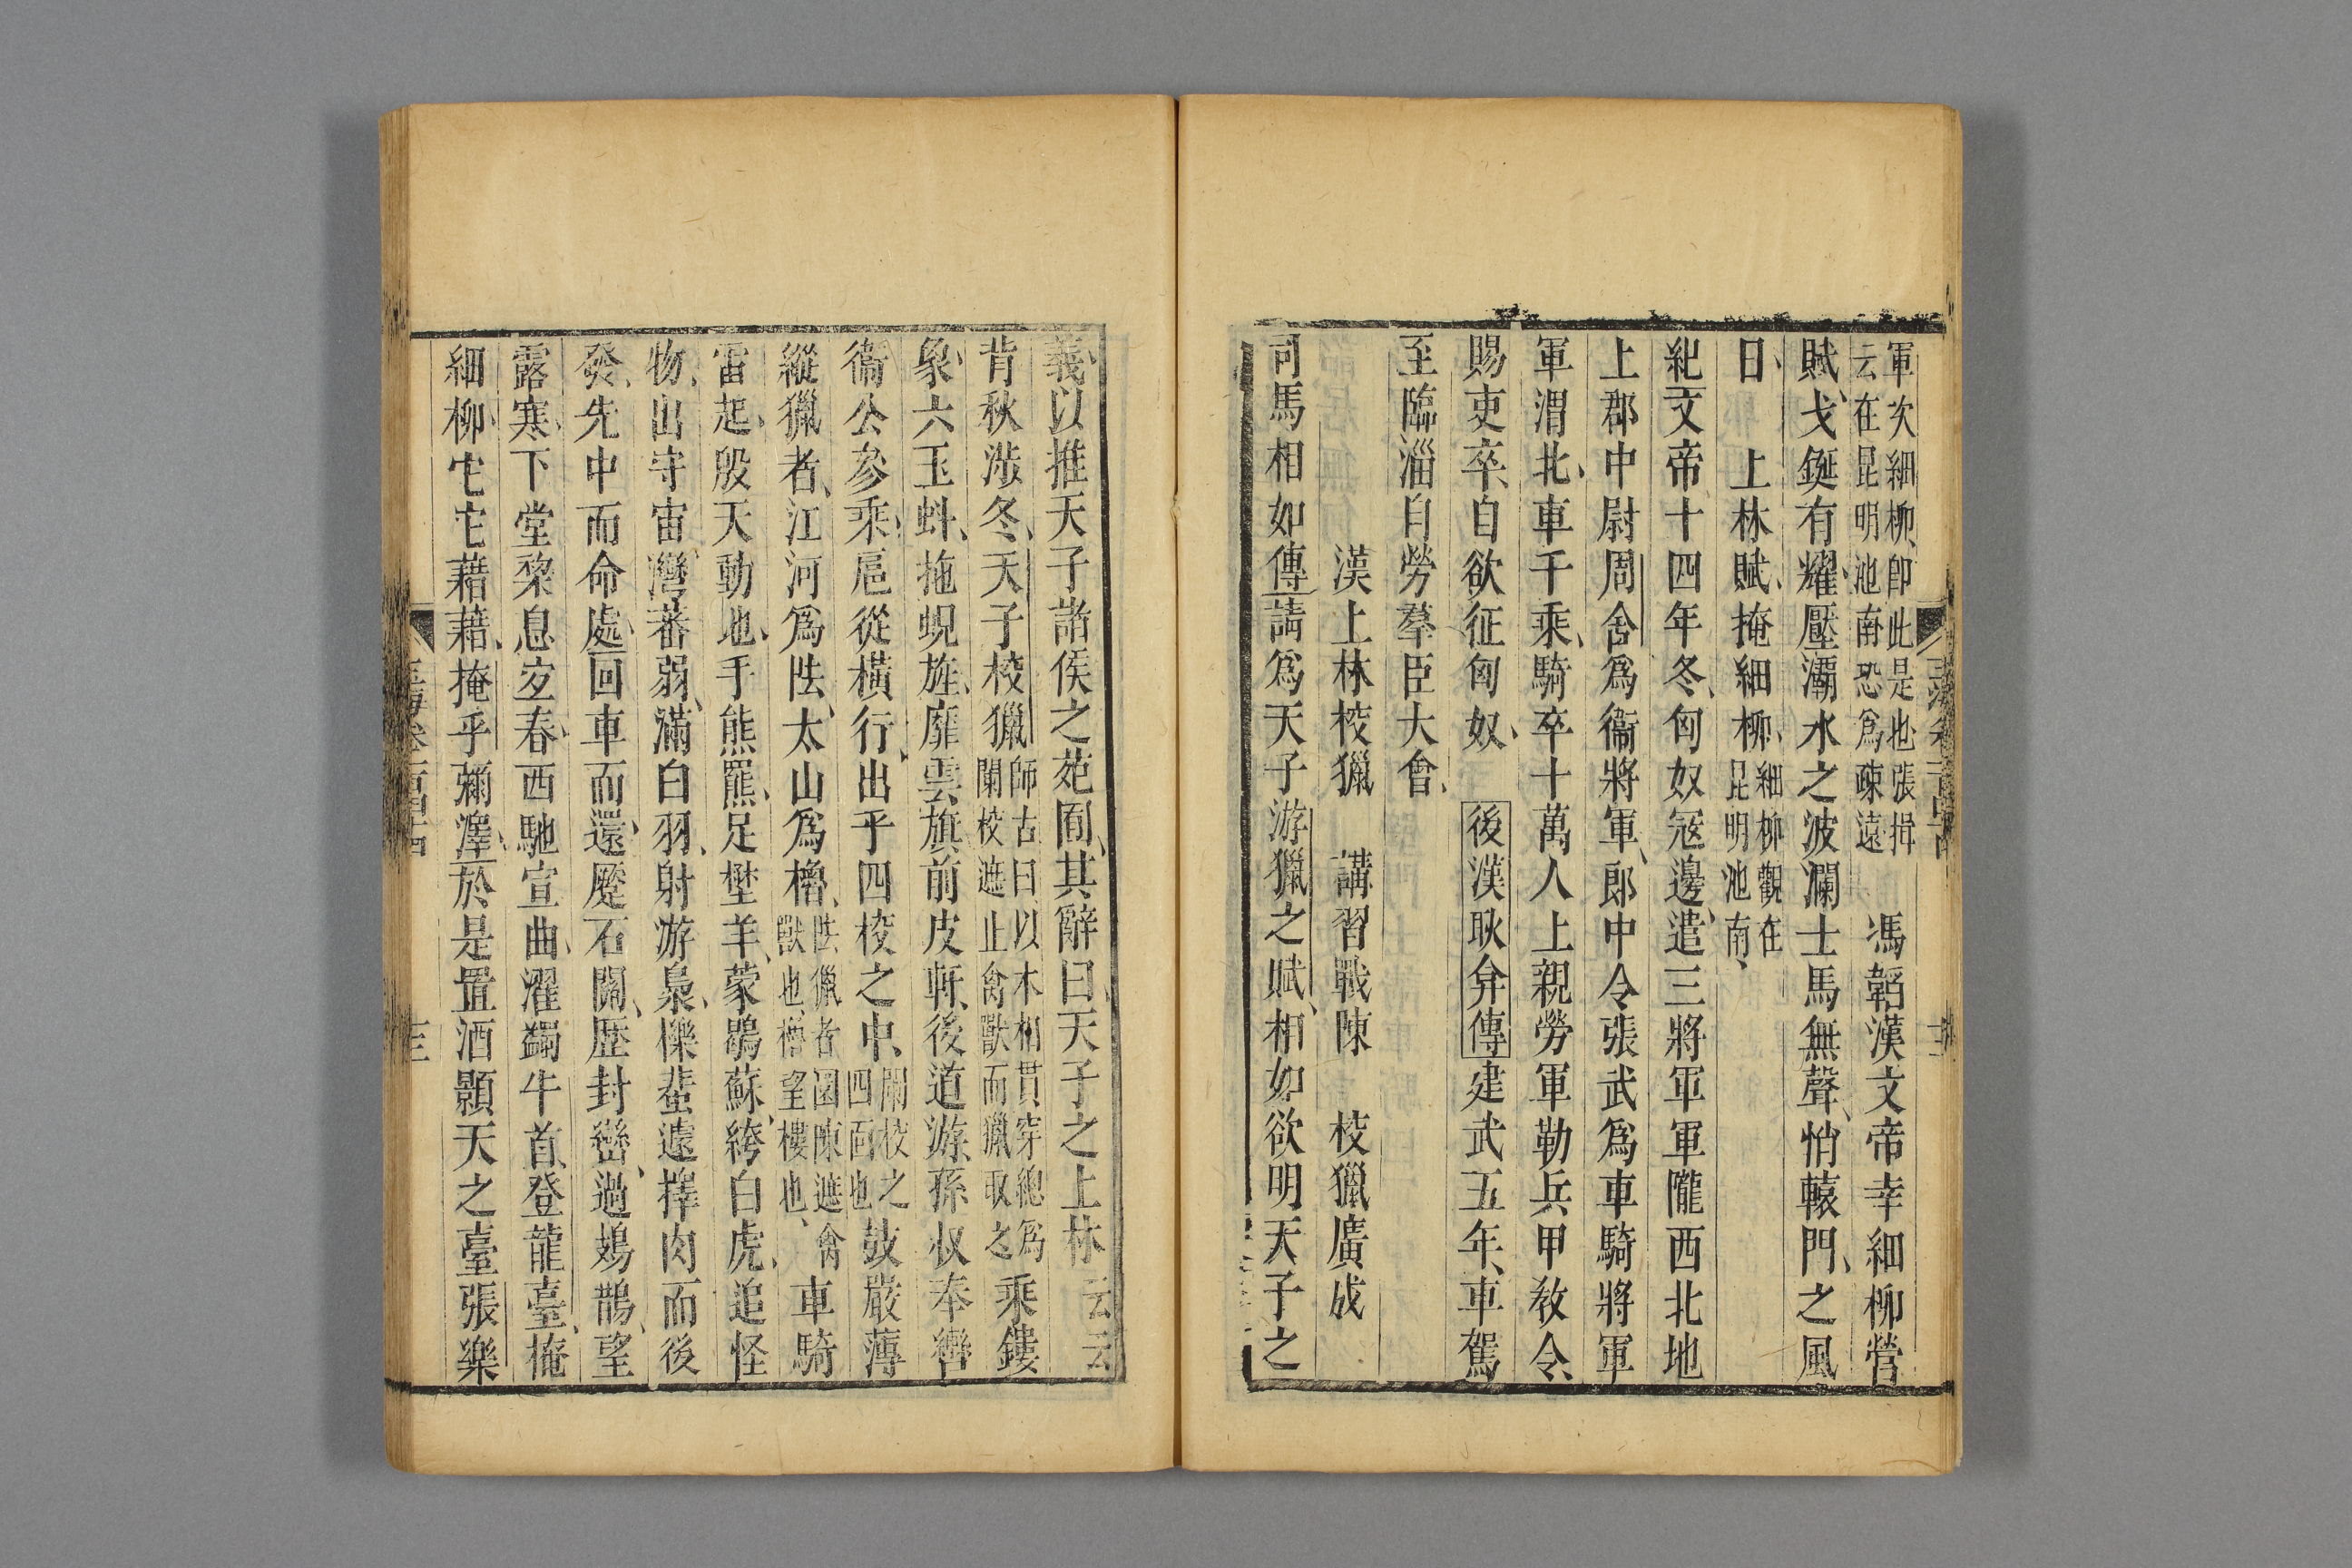 軍次細柳即此是也張揖云在昆明池南恐爲疎遠 馮韜漢文帝幸細柳營
賦戈鋋有耀壓灞水之波瀾士馬無聲悄轅門之風
日 上林賦掩細柳細柳觀在昆明池南
紀文帝十四年冬匈奴寇邊遣三將軍軍隴西北地
上郡中尉周舍爲衞將軍郎中令張武爲車騎將軍
軍渭北車千乘騎卒十萬人上親勞軍勒兵甲敎令
賜吏卒自欲征匈奴 後漢耿弇傳建武五年車駕
至臨淄自勞羣臣大會
漢上林校獵 講習戰陳 校獵廣成
司馬相如傳請爲天子游獵之賦相如欲明天子之
義以推天子諸侯之苑囿其辭曰天子之上林云云
背秋涉冬天子校獵師古曰以木相貫穿總爲闌校遮止禽獸而獵取之乘鏤
象六玉虯拖蜺旌靡雲旗前皮軒後道游孫叔奉轡
衞公參乘扈從橫行出乎四校之中闌校之四面也鼓嚴薄
縱獵者江河爲阹太山爲櫓阹獵者圍陳遮禽獸也櫓望樓也車騎
雷起殷天動地手熊羆足壄羊蒙鶡蘇絝白虎追怪
物出宇宙灣蕃弱滿白羽射游梟櫟蜚遽擇肉而後
發先中而命處回車而還蹷石闕歷封巒過鳷鵲望
露寒下堂棃息宜春西馳宣曲濯鷁牛首登龍臺掩
細柳它它藉藉掩乎彌澤於是置酒顥天之臺張樂